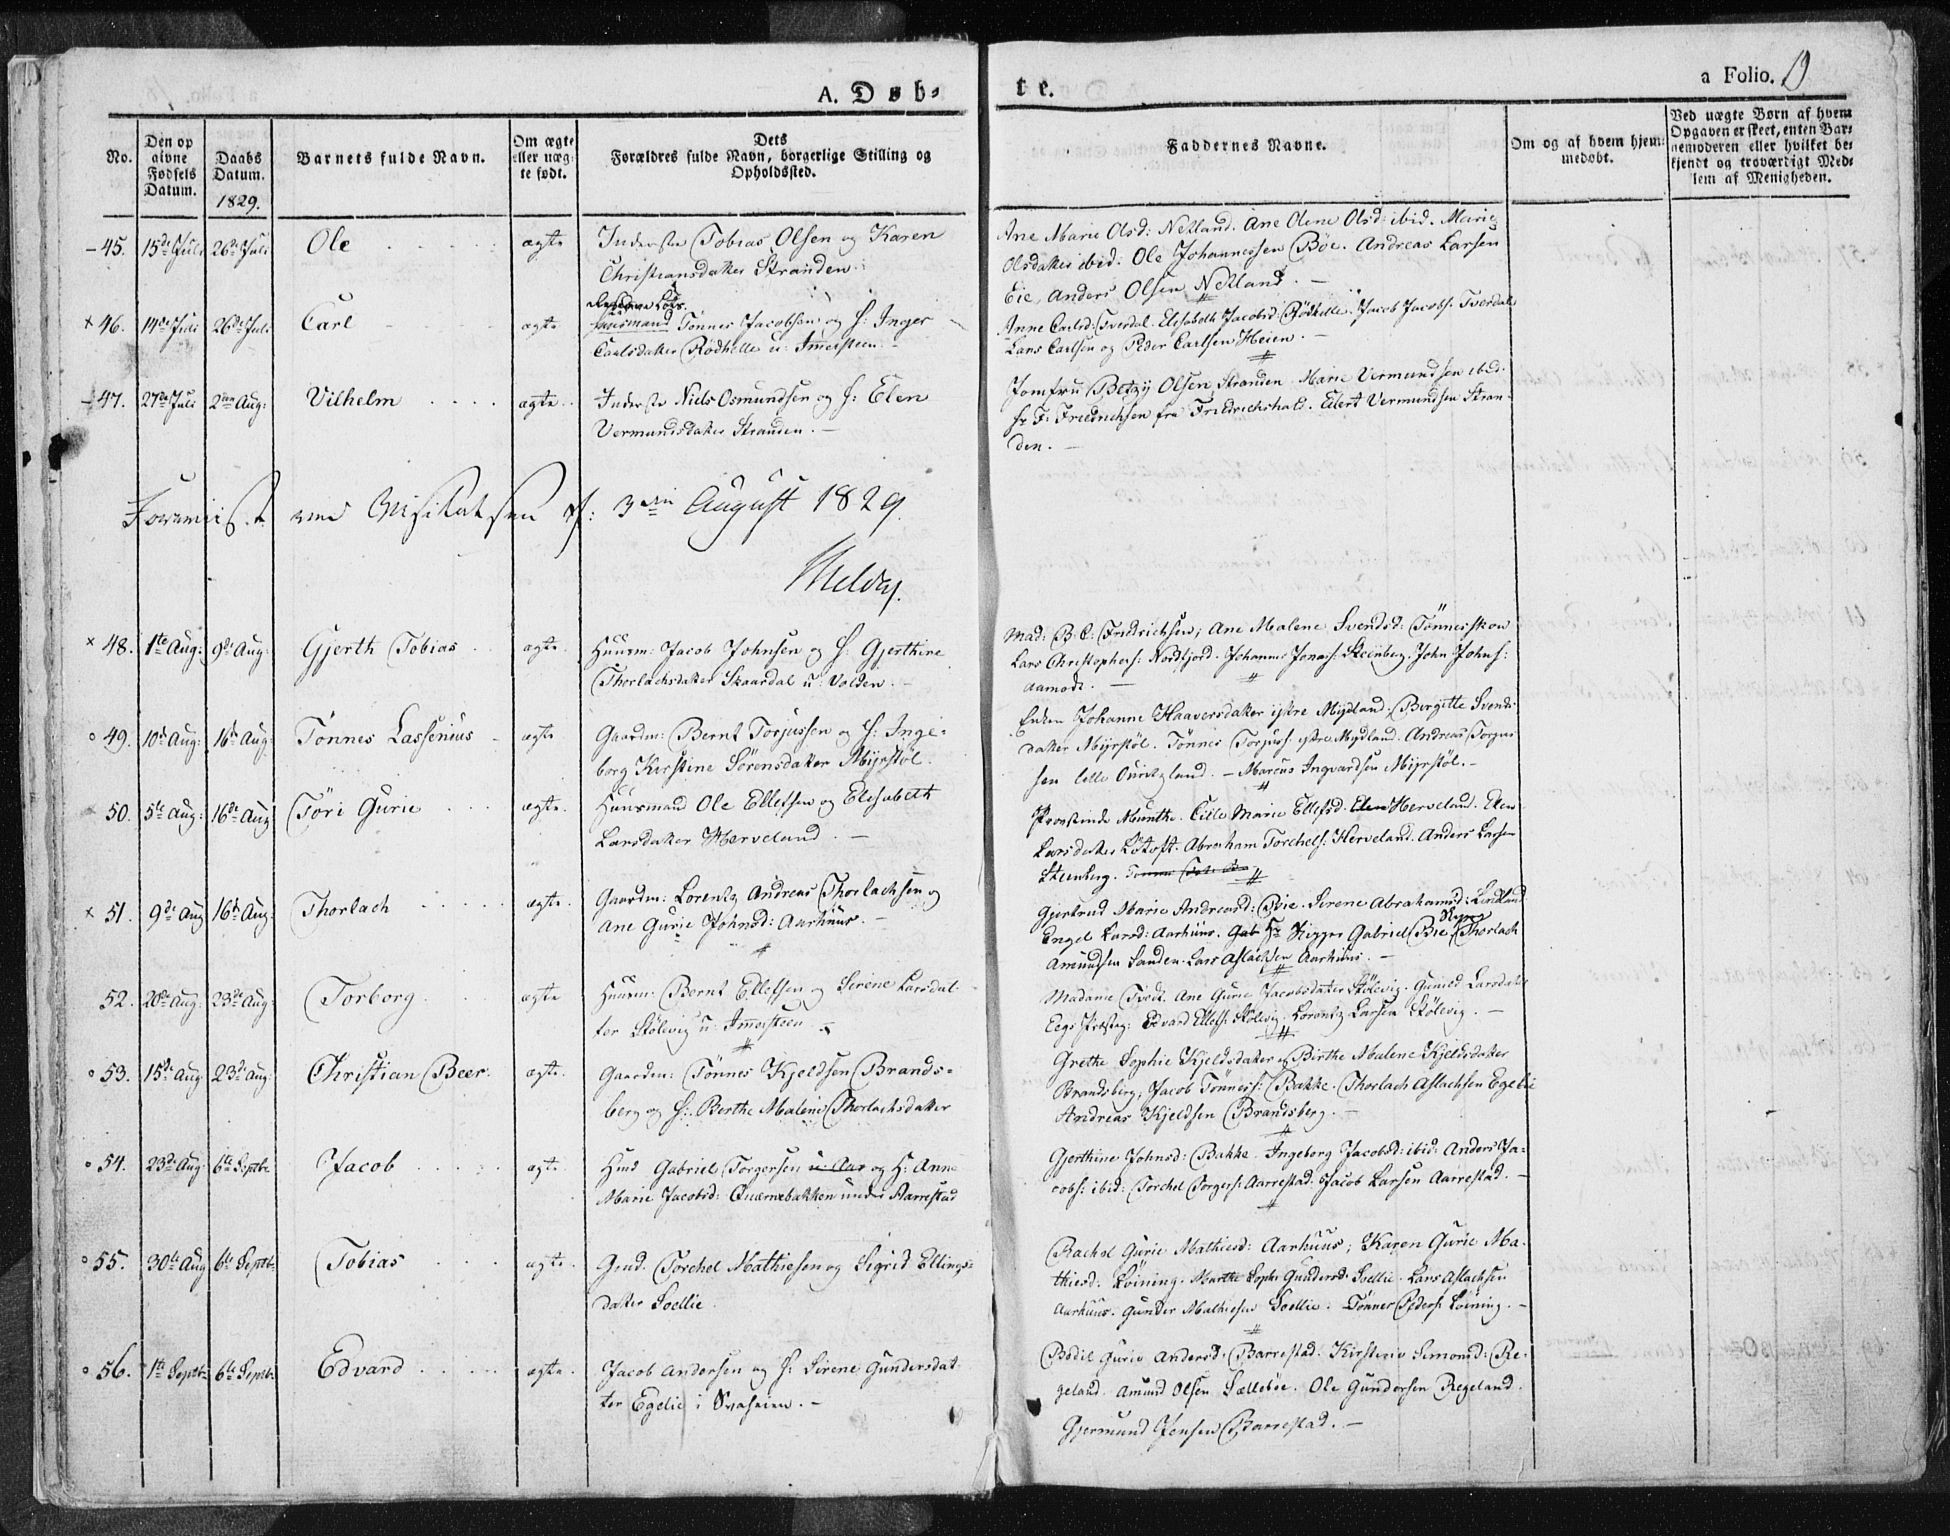 A. Døb-
te.
a Folio. 19
No.
Den op
givne
Fødsels
Datum.
Daabs
Datum.
1829.
Barnets fulde Navn.
Om ægte
eller uæg-
te født.
Dets
Forældres fulde Navn, borgerlige Stilling og
Opholdssted.
Faddernes Navne.
Om og af hvem hjem-
medøbt.
Ved uægte Børn af hvem
Opgaven er skeet, enten Bar-
nemoderen eller hvilket be-
kjendt og troværdigt Med-
lem af Menigheden.
45. 15de Juli 26de Juli Ole ægte Inderste Tobias Olsen og Karen
Christiansdatter Stranden.
Ane Marie Olsd: Netland. Ane Olene Olsd: ibid. Marie
Olsdatter ibid: Ole Johannessen Böe. Andreas Larsen
Eie, Anders Olsen Netland. —
× 46. 14de Juli 26de Juli Carl ægte
Huusmand Tönnes Jacobsen og H: Inger
Carlsdatter Rödhelle u: Immersteen. -
Anne Carlsd: Tverdal. Elisabeth Jacobsd: Rödhelle. Jacob Jacobs: Tverdal
Lars Carlsen og Peder Carlsen Heien. —
47. 27de Juli 2den Aug: Vilhelm ægte. Inderste Niels Osmundsen og H: Elen
Vermundsdatter Stranden. —
Jomfru Betzÿ Olsen Stranden. Marie Vermundsen ibid.
Hr F: Friedrichsen fra Friedrichshald. Eilert Vermundsen Stran-
den. —
ved Visitatsen d: 3die August 1829.
× 48. 1te Aug: 9de Aug: Gjerth Tobias ægte. Huusm: Jacob Johnsen og H: Gjerthine
Thorlachsdatter Skaardal u: Valden. -
Mad: B: C: Fredrichsen, Ane Malene Svendsd: Tönnesskow
Lars Christophers: Nordfjord. Johannes Jonas: Steenberg. John Johns:
Aamodt. —
° 49. 10de Aug: 16de Aug: Tönnes Lassenius ægte Gaardm: Bernt Torjussen og H: Inge-
borg Kirstine Sörensdatter Mÿrstöl.
Enken Johanne Haaversdatter ÿstre Mÿdland. Birgitte Svends-
datter Mÿrstöl. Tönnes Torjuss. ÿstre Mÿdland. Andreas Torgus-
sen lille — Marcus Ingvardsen Mÿrstöl. -
50. 5te Aug: 16de Aug Töri Gurie ægte. Huusmand Ole Ellefsen og Elisabeth
Larsdatter Herveland. —
Provstinde Munthe. Cille Marie Ellefsd. Elen Herveland. Elen
Larsdatter Lötoft. Abraham Torchels: Herveland. Anders Larsen
Steenberg.
× 51. 9de Aug 16de Aug: Thorlach ægte. Gaardm: Lorentz Andreas Thorlachsen og
Ane Gurie Johnsd: Aarhuus. -
Gjertrud Marie Andreasd: Bie. Sirene Abrahamsd: Lindland
Engel Larsd: Aarhuus. Gab Hr Skipper Gabriel Bie Thorlach
Amundsen Sanden. Lars Aslachsen Aarhuus. —
52. 20de Aug: 23de Aug: Torborg ægte Huusm: Bernt Ellefsen og Sirene Larsdat-
ter Stölevig u: Immersteen
Madame Tvedt. Ane Gurie Jacobsdatter Stölevig. Gunild Larsdatter
Eegs Præsteg: Edvard Ellefs: Stölevig. Lorentz Larsen Stölevig. —
° 53. 15de Aug 23de Aug: Christian Beer. ægte. Gaardm: Tönnes Kjeldsen Brands-
berg og H: Berthe Malene Thorlachsdatter
Grethe Sophie Kjeldsdatter Birthe Malene Kjeldsdatter
Brandsberg, Jacob Tönness: Bakke. Thorlach Aslachsen Egelie
Andreas Kjeldsen Brandsberg. —
° 54. 23de Aug: 6te Septbr Jacob ægte. Hmd Gabriel Torgersen u: Aar og H: Anne
Marie Jacobsd: Qværnebakken under Aarrestad
Gjerthine Johnsd: Bakke. Ingeborg Jacobsd: ibid: Anders Ja-
cobs: ibid: Torchel Torgers: Aarrestad. Jacob Larsen Aarrestad. -
° 55. 30te Aug 6te Septbr. Tobias ægte. Gmd. Torchel Mathiesen og Sigrid Ellings-
datter Soellie.
Rachel Gurie Mathiesd: Aarhuus; Karen Gurie Ma-
thiesd: Löining. Marthe Sophie Gundersd: Soellie. Lars Aslachsen
Aarhuus. Gunder Mathiesen Soellie: Tönnes Peders: Löining. -
° 56. 1te Septbr 6te Septbr. Edvard ægte. Jacob Andersen og H: Sirene Gundersdat-
ter Egelie i Svaheien. -
Bodil Gurie Andersd: Barrestad. Kirstine Simonsd: Re-
geland. Amund Olsen Sællebøe. Ole Gundersen Regeland.
Gjermund Jensen Barrestad. —